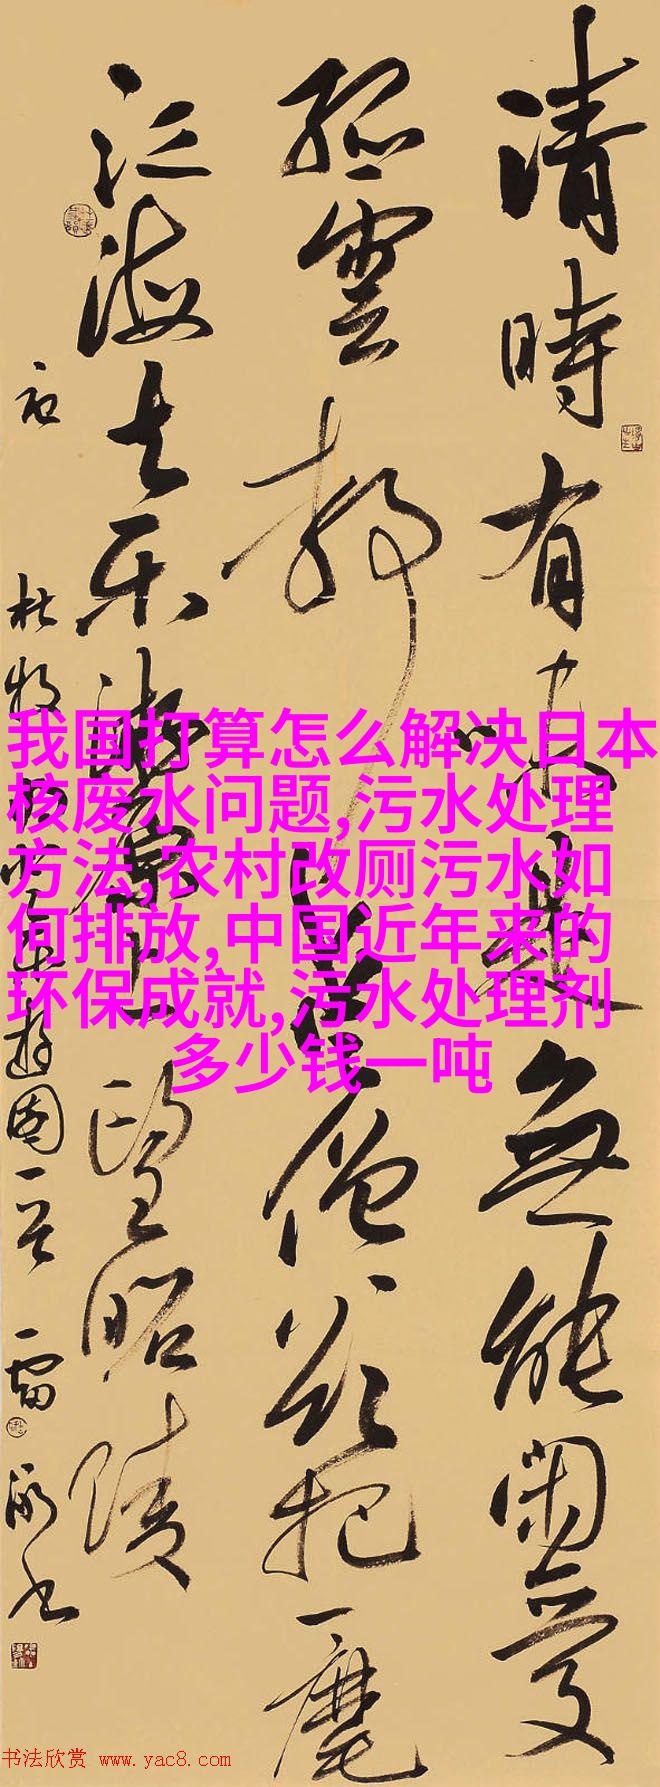 清時有味是無能閒愛
孤雲靜愛僧欲把一麾
江海去乐遊原上望昭陵
杜牧
我国打算怎么解决日本
核废水问题,污水处理
方法,农村改厕污水如
何排放,中国近年来的
环保成就,污水处理剂
多少钱一吨
书法欣赏 www.yac8.com